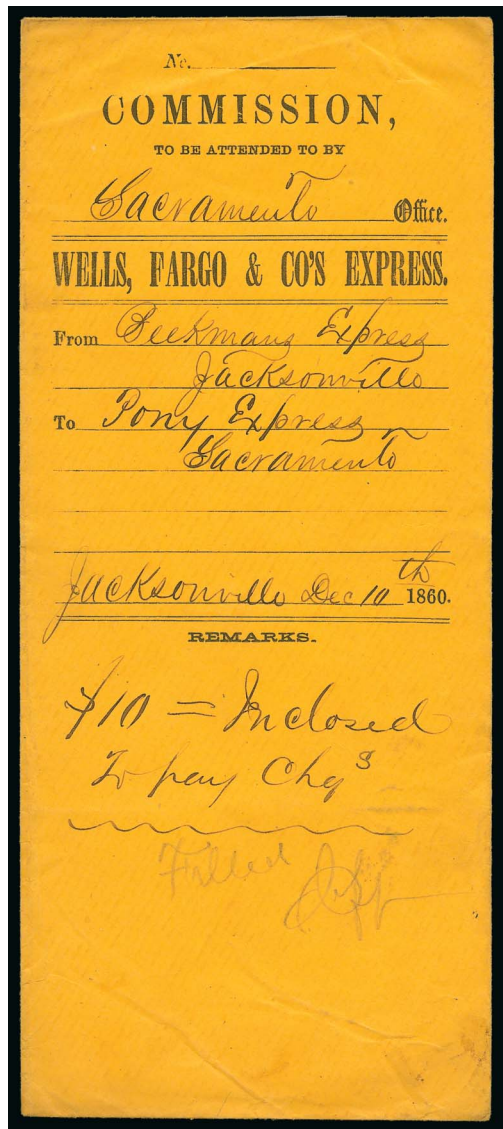 No.
COMMISSION,
TO BE ATTENDED TO BY
Sacramento Office.
WELLS, FARGO & CO'S EXPRESS.
From Beekmans Express
Jacksonville
To Pony Express
Sacramento
Jacksonville Dec 10th 1860.
REMARKS.
$10 = Inclosed
To pay Chgs
Filled